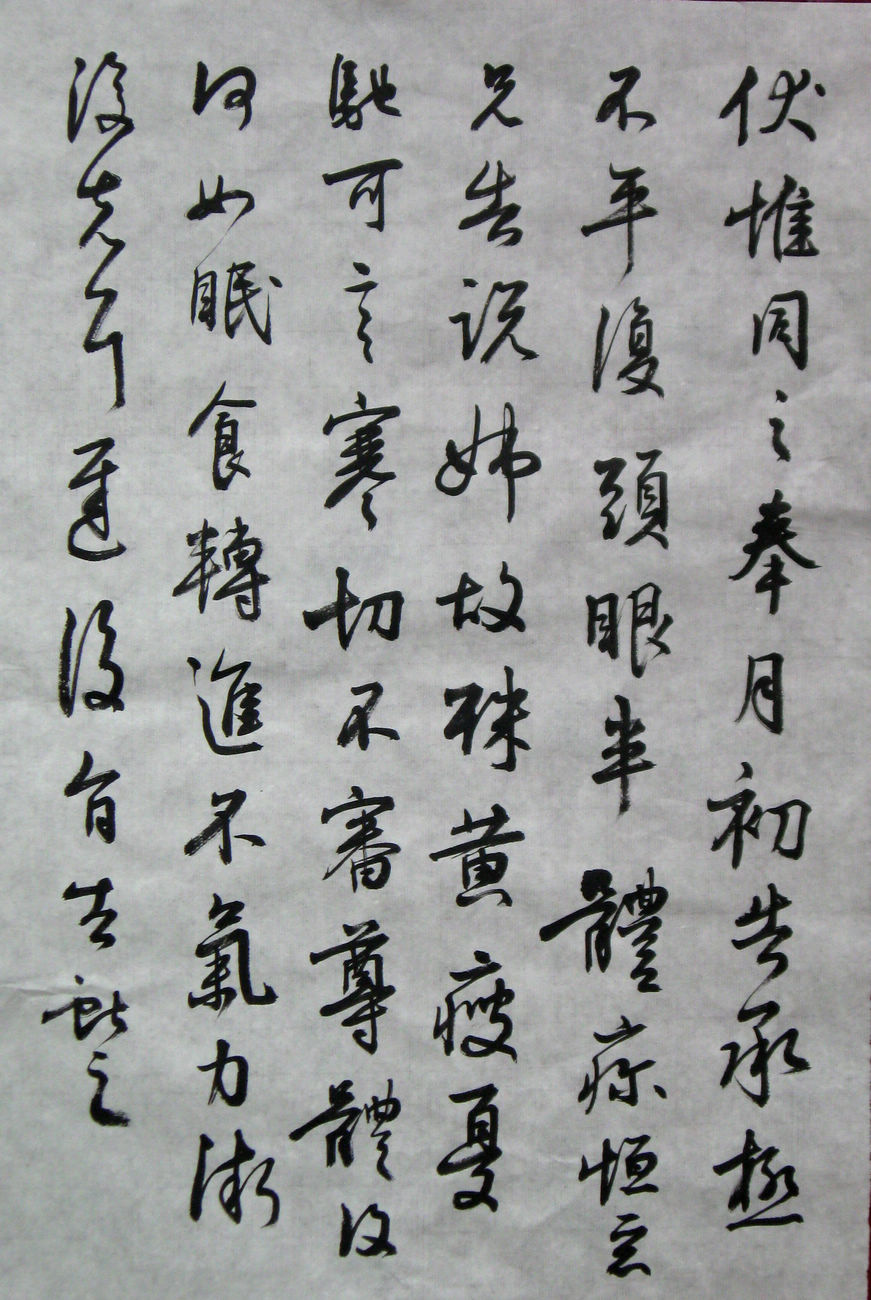 伏惟同之奉月初告承極
不平復頭眼半體疼恒惡
兄告說姊故殊黃瘦憂
馳可言寒切不審尊體復
何如眠食轉進不氣力漸
復先耳遲復旨告獻之